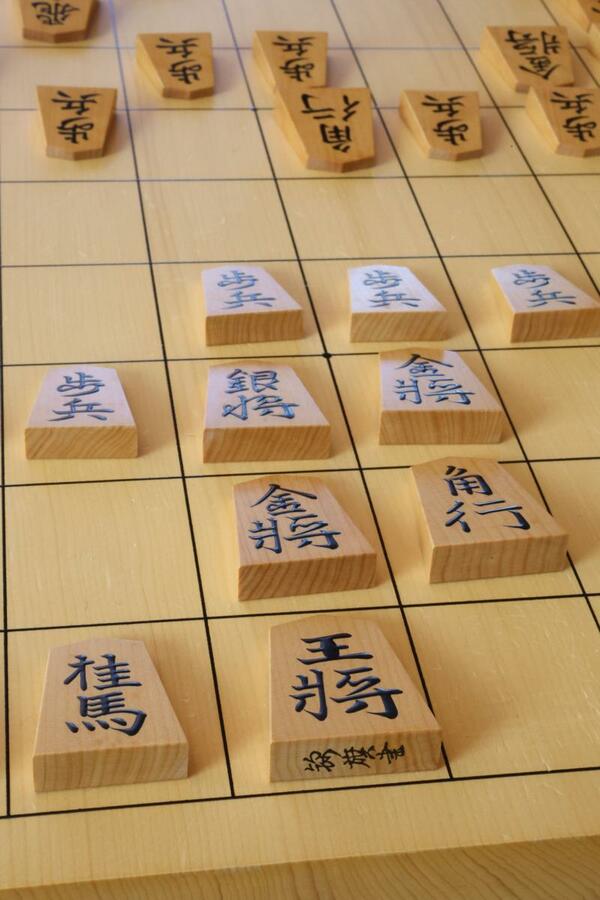 飛
歩兵
歩兵
金将
歩兵
角行
歩兵
歩兵
歩兵
歩兵
歩兵
歩兵
銀将
金将
金将
角行
桂馬
王将